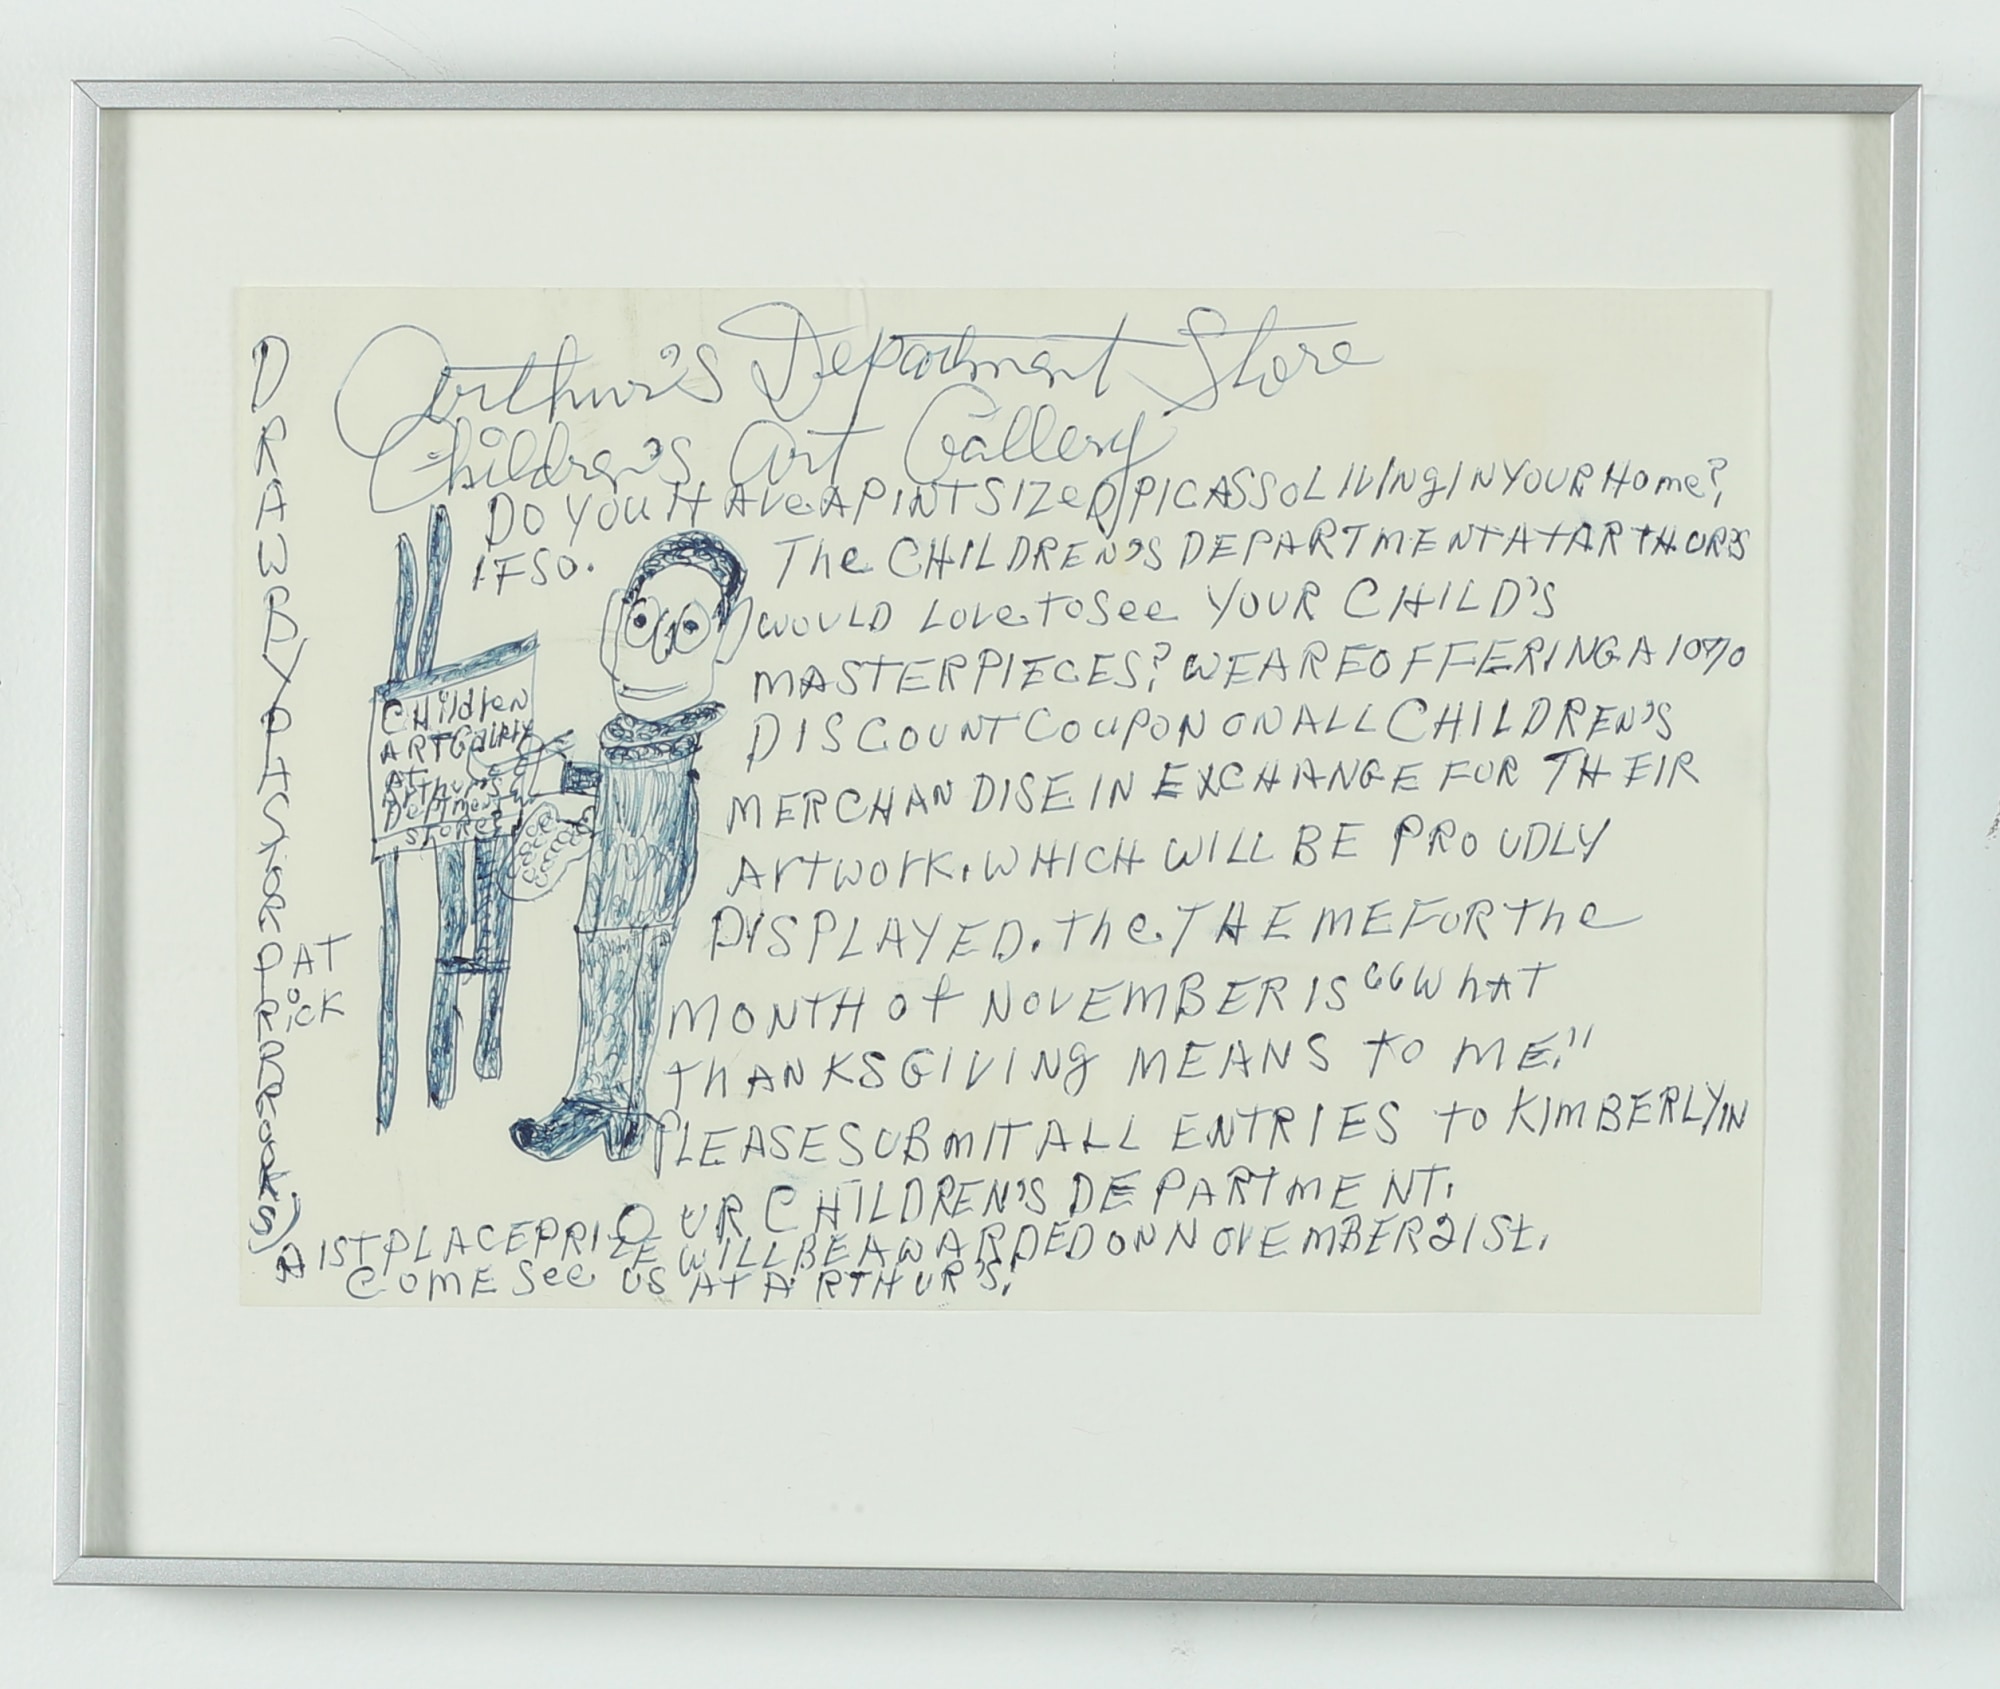 Arthur's Department Store
Children's Art Gallery
DO YOU HAVe A PINT SIZeD PICASSO LIVINg IN YOUR Home?
IF SO.
The CHILDREN'S DEPARTMENT AT ARTHUR'S
WOULD LOVe to See YOUR CHILD'S
MASTERPIECES? WE ARE OFFERING A 10%
DISCOUNT COUPON ON ALL CHILDREN'S
MERCHANDISE IN EXCHANGE FOR THEIR
Artwork. WHICH WILL BE PROUDLY
DISPLAYED. the THEME FOR the
MONTH of NOVEMBER IS "WhAT
ThANKSGIVINg MEANS to ME."
PLEASE SUBMIT ALL ENTRIES to KIMBERLY IN
OUR CHILDREN'S DEPARTMENT.
A 1ST PLACE PRIZE WILL BE AWARDED ON NOVEMBER 21St.
COME See US AT ARTHUR'S!
CHildren
ART Gallry
At
Arthur's
Deptment
Store
DRAW BY PASTOR
AT